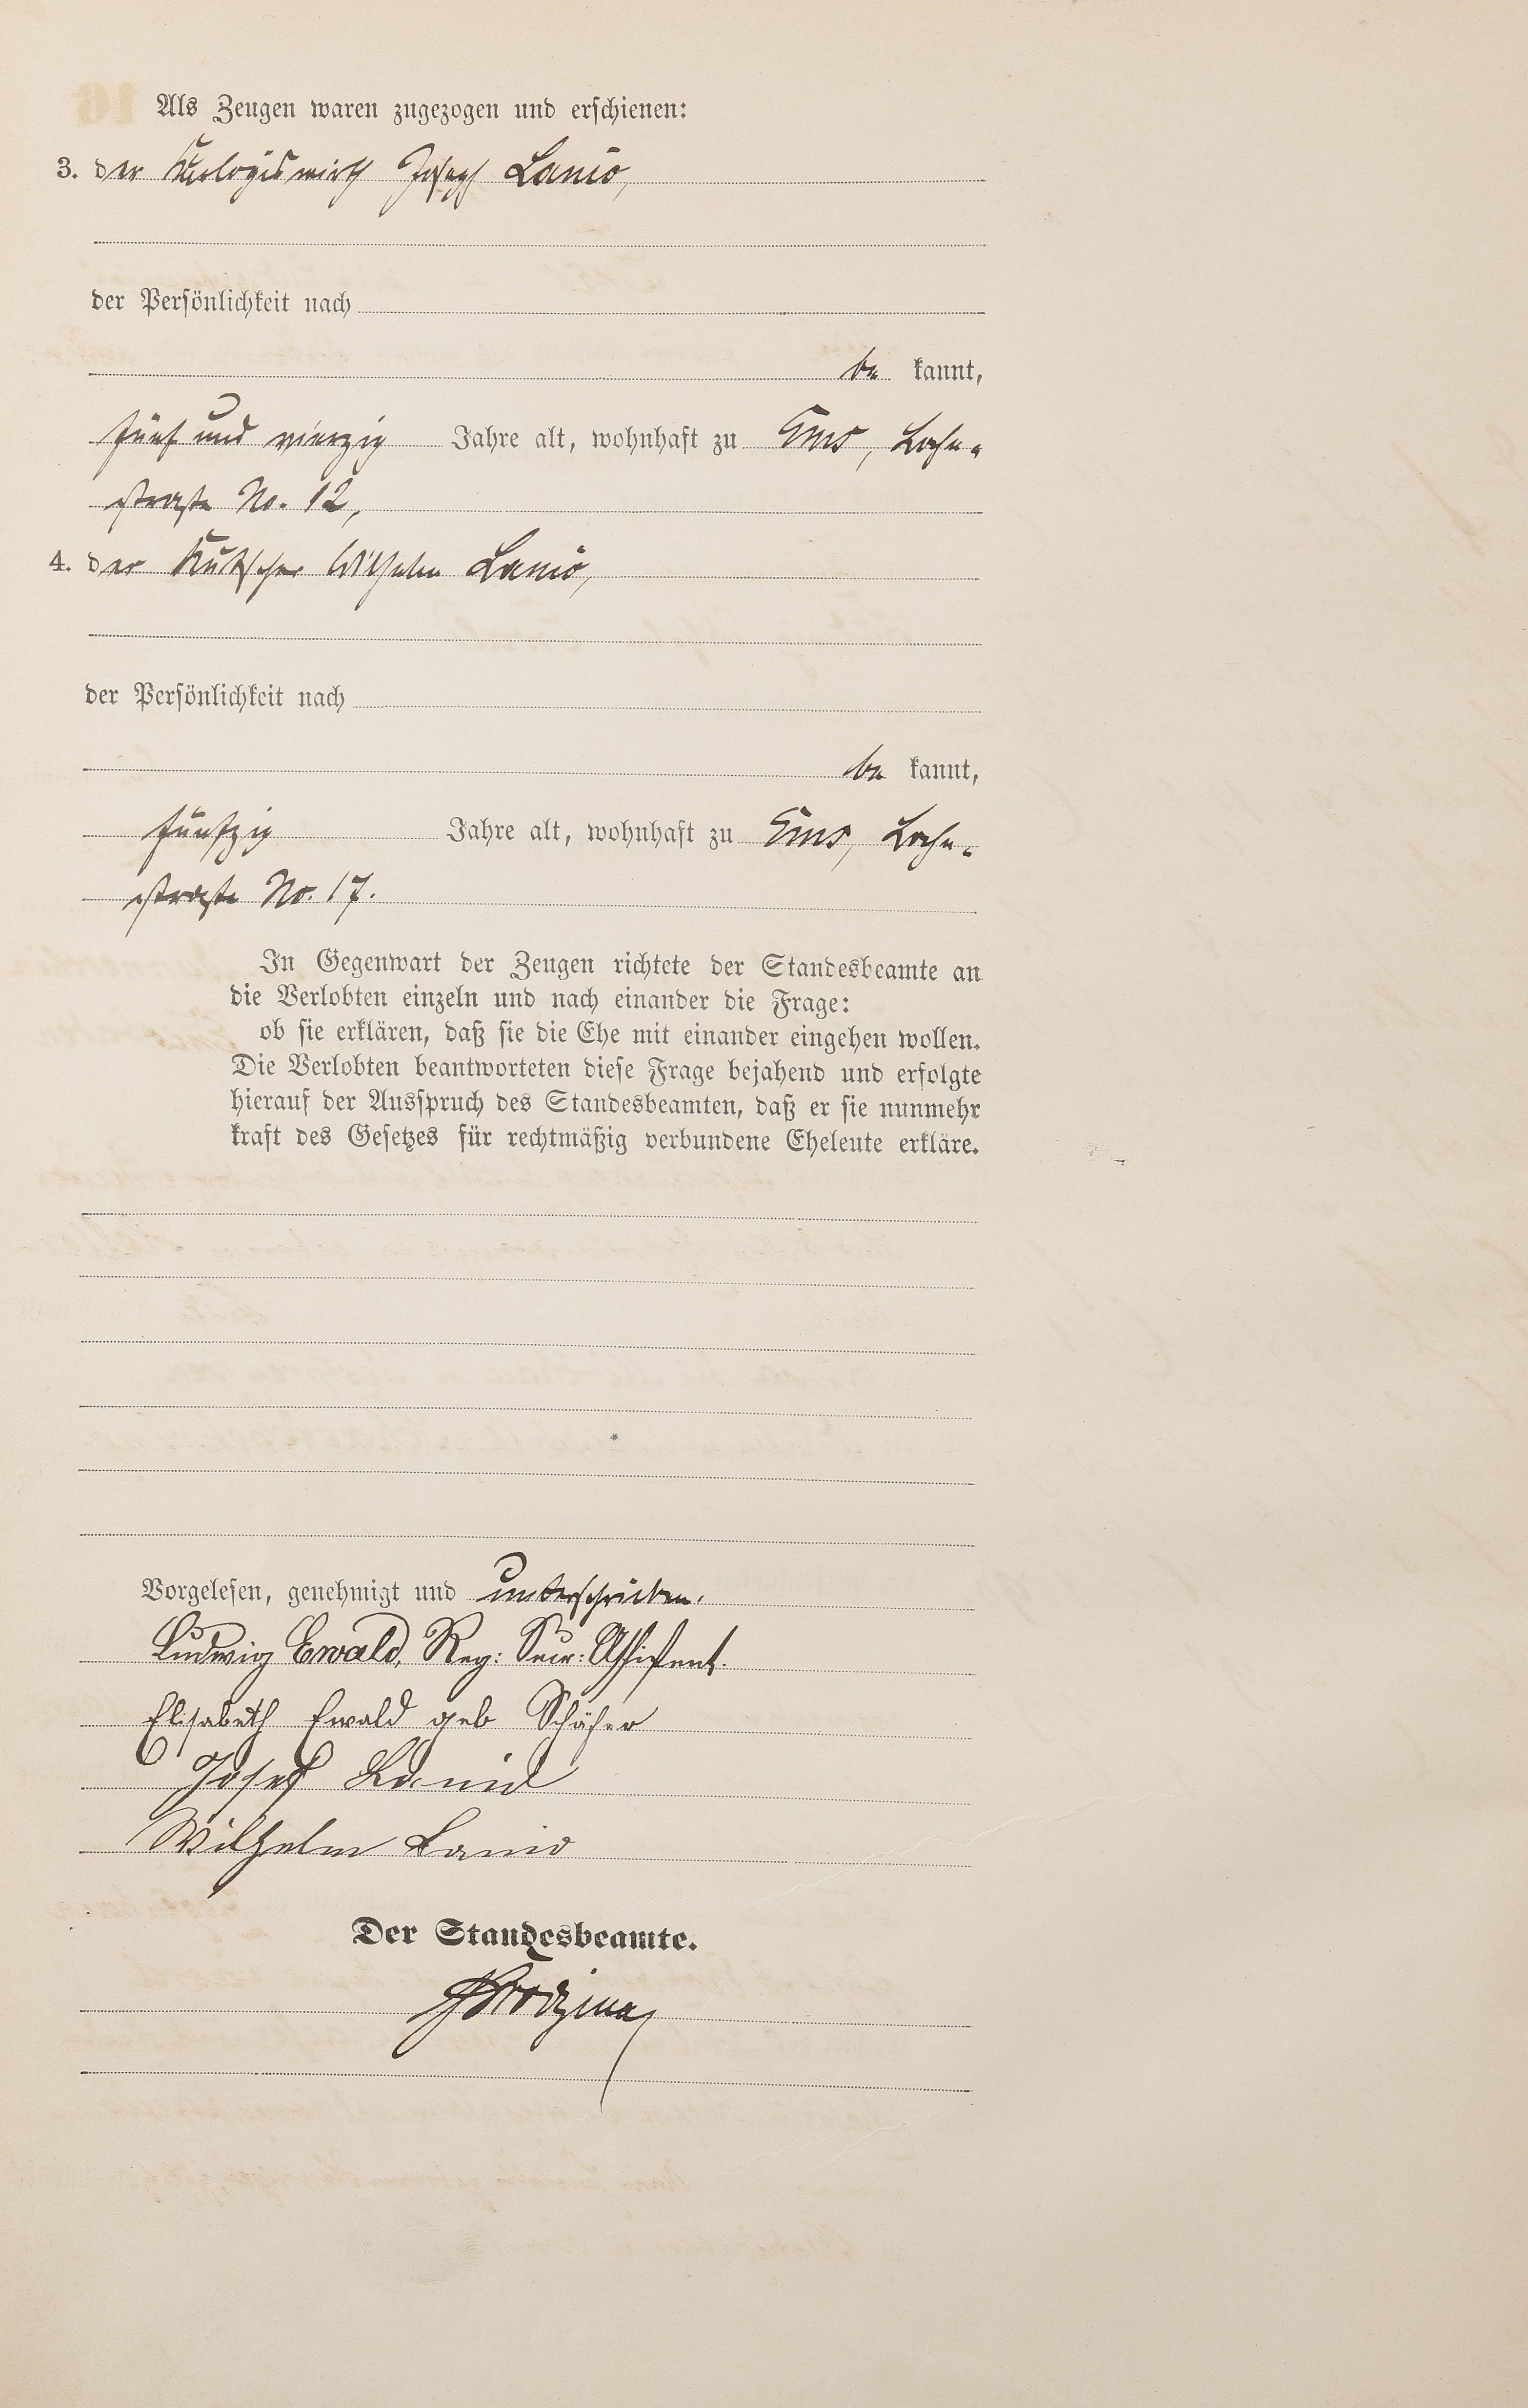 Als Zeugen waren zugezogen und erschienen:
3. der Kurlogiswirth Joseph Lanio,
der Persönlichkeit nach
be kannt,
fünf und vierzig Jahre alt, wohnhaft zu Ems, Lahn-
straße No. 12,
4. der Kutscher Wilhelm Lanio,
der Persönlichkeit nach
be kannt,
fünfzig Jahre alt, wohnhaft zu Ems, Lahn-
straße No. 17.
In Gegenwart der Zeugen richtete der Standesbeamte an
die Verlobten einzeln und nach einander die Frage:
ob sie erklären, daß sie die Ehe mit einander eingehen wollen.
Die Verlobten beantworteten diese Frage bejahend und erfolgte
hierauf der Ausspruch des Standesbeamten, daß er sie nunmehr
kraft des Gesetzes für rechtmäßig verbundene Eheleute erkläre.
Vorgelesen, genehmigt und unterschrieben.
Ludwig Ewald, Reg: Secr: Assistent.
Elisabeth Ewald geb Schäfer
Josef Lanio
Wilhelm Lanio
Der Standesbeamte.